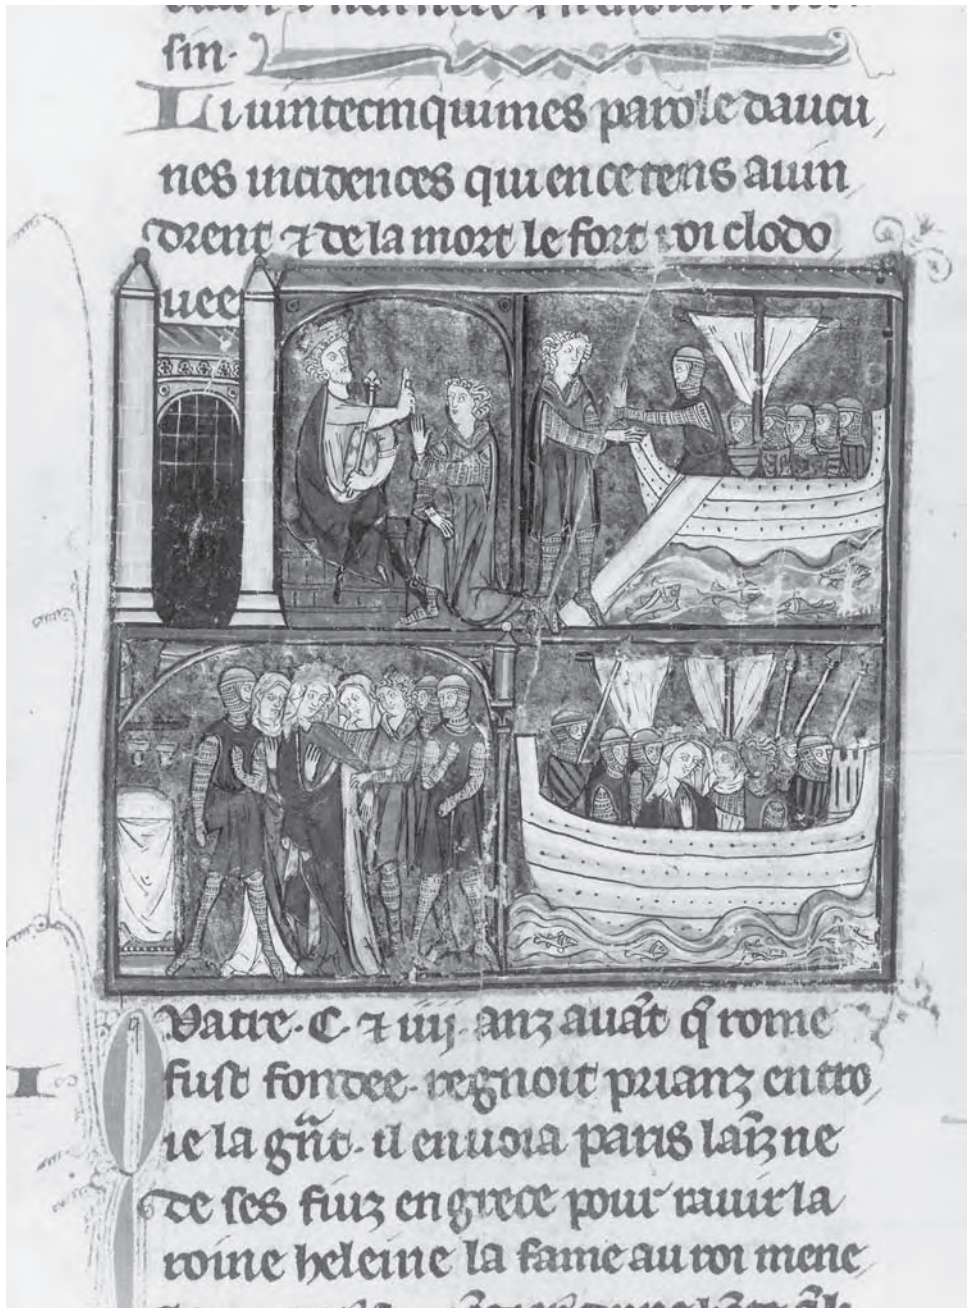 sin.
Li uintecinquimes parole daucu
nes incidences qui en ce tens auin
drent ⁊ de la mort le fort roi clodo
uee
Vatre. C. ⁊ iiij. anz auãt q̃ rome
fust fondee. regnoit prianz en tro
ie la gñt. il enuoia paris lainz ne
de ses fiuz en grece pour rauir la
roine heleine la fame au roi mene